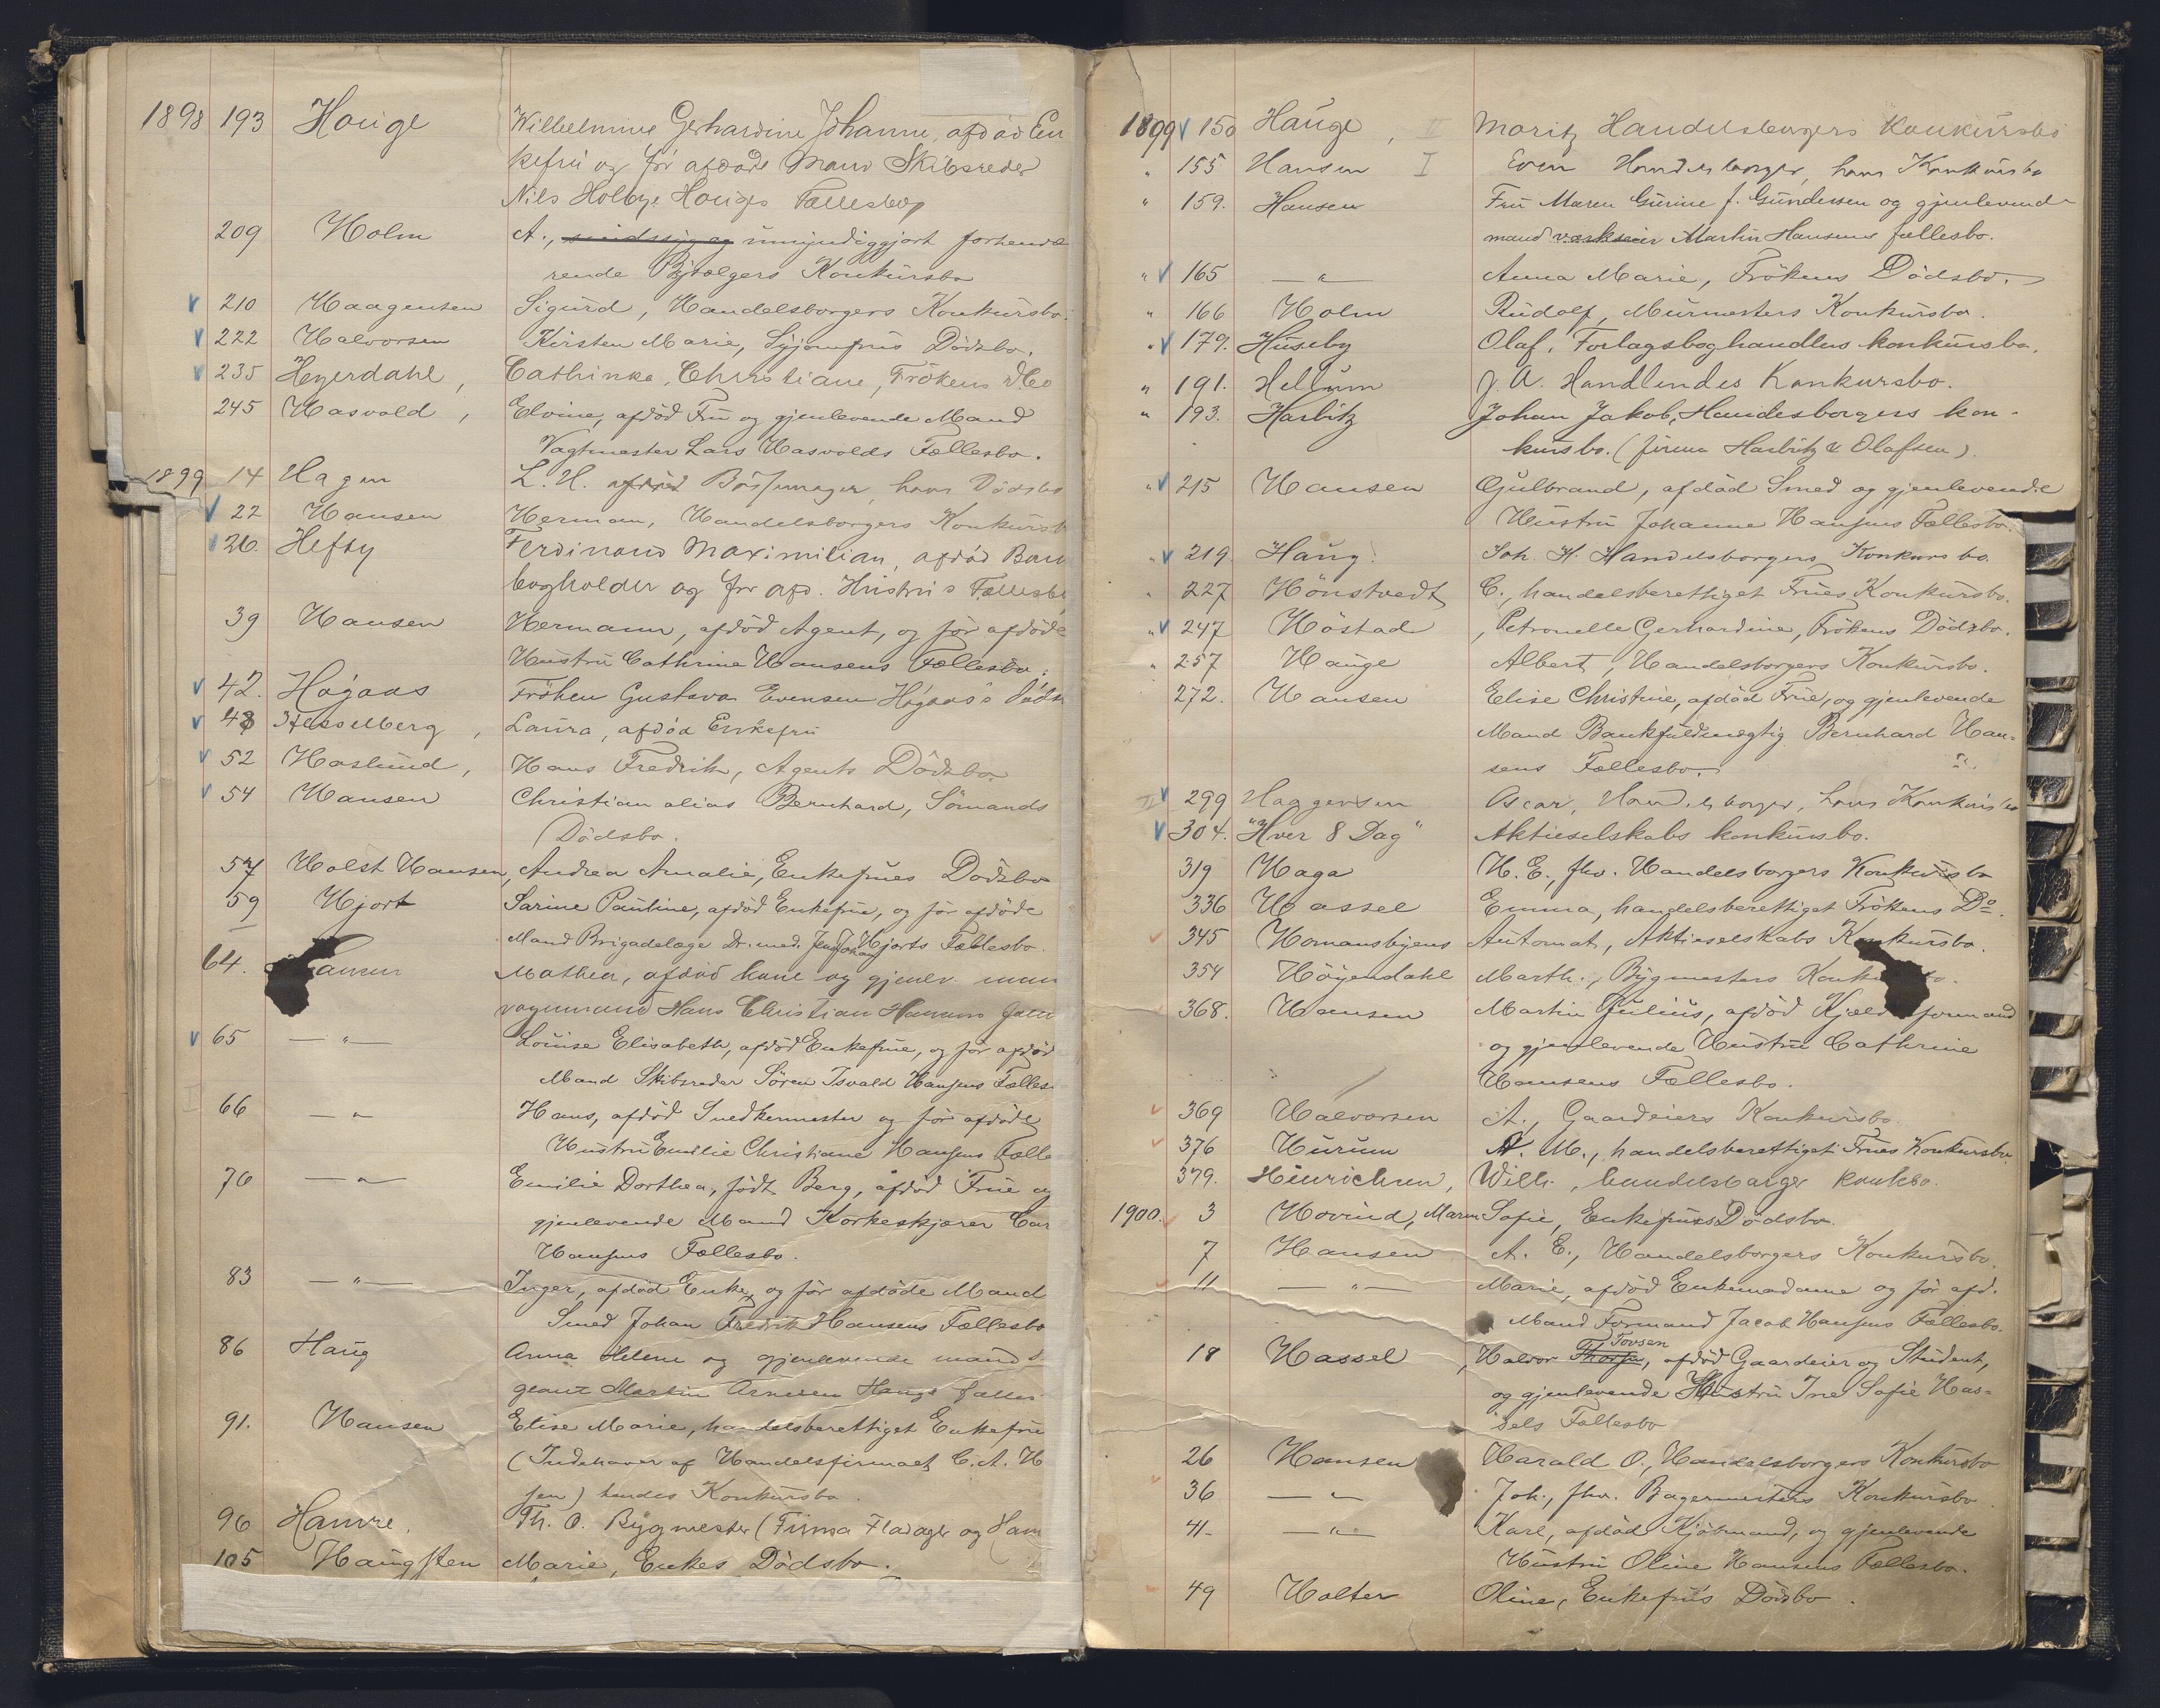 1898 193 Houge Wilhelmine Gerhardine Johanne, afdöd En
kefru og før afdøde Mand Skibsreder
Nils Holbye Houges Fællesbo
209 Holm A., sindssyg og umyndiggjort forhenvæ
rende Bÿsælgers Konkursbo
210 Haagensen Sigurd, Handelsborgers Konkursbo.
222 Halvorsen Kirsten Marie, Syjomfrus Dödsbo.
235 Heyerdahl, Cathinka Christiane, Frökens Do
245 Hasvold, Elvine, afdöd Fru og gjenlevende Mand
Vagtmester Lars Hasvolds Fællesbo.
1899 14 Hagen L. H. afdöd Børsemager, hans Dödsbo
22 Hansen Herman, Handelsborgers Konkursb
26. Hefty Ferdinand Maximilian, afdöd Ban
bogholder og før afd. Hustru's Fællesbo
39 Hansen Hermann, afdöd Agent, og för afdöde
Hustru Cathrine Hansens Fællesbo.
42. Högaas Fröken Gustava Evensen Högaas's Döds
48 Hesselberg, Laura, afdöd Enkefru
52 Haslund, Hans Fredrik, Agents Dödsbo
54 Hansen Christian alias Bernhard, Sömands
Dödsbo.
57 Holst Hansen, Andrea Amalie, Enkefrues Dödsbo
59 Hjort Sarine Pauline, afdöd Enkefrue, og för afdöde
Mand Brigadelæge Dr. med. Jens Johan Hjorts Fællesbo.
64. Hansen Mathea, afdöd kone og gjenlev. man
vognmand Hans Christian Hansens
65 — " — Louise Elisabeth, afdöd Enkefrue, og för afdöd
Mand Skibsreder Sören Isvald Hansens Fælles
66 — " — Hans, afdöd Snedkermester og för afdöde
Hustru Emilie Christiane Hansens Fælle
76 — " — Emilie Dorthea, födt Berg, afdöd Frue og
gjenlevende Mand Korkeskjærer Car
Hansens Fællesbo.
83 — " — Inger, afdöd Enke, og för afdöde Mand
Smed Johan Fredrik Hansens Fællesbo
86 Haug Anna Helene og gjenlevende mand S
geant Martin Arnesen Haugs fælles
91. Hansen Elise Marie, handelsberettiget Enkefru
(Indehaver af Handelsfirmaet C. A. H
sen) hendes Konkursbo.
96 Hamre. Th. O. Bygmester (Firma Fladager og Ham
105 Haugsten Marie, Enkes Dödsbo.
1899 150 Hauge, II Moritz Handelsborgers Konkursbo
" 155 Hansen I Even Handelsborger, hans Konkursbo
" 159. Hansen Fru Maren Gurine f. Gundersen og gjenlevende
mand værkseier Martin Hansens fællesbo.
" 165 — " — Anna Marie, Frökens Dödsbo.
" 166 Holm Rudolf, Murmesters Konkursbo.
" 179. Huseby Olaf, Forlagsboghandlers konkursbo.
" 191. Hellum J. A. Handlendes Konkursbo.
" 193. Harbitz Johan Jakob, Handesborgers kon-
kursbo. (firma Harbitz & Olafsen).
" 215 Hansen Gulbrand, afdöd Smed og gjenlevende
Hustru Johanne Hansens Fællesbo.
" 219. Haug. Joh. H. Handelsborgers Konkursbo.
" 227 Hönstvedt C., handelsberettiget Frues Konkursbo.
" 247 Höstad, Petronelle Gerhardine, Frökens Dödsbo.
" 257 Hauge Albert, Handelsborgers Konkursbo.
272. Hansen Elise Christine, afdöd Frue, og gjenlevende
Mand Bankfuldmægtig Bernhard Han-
sens Fællesbo.
II 299 Haagensen Oscar, Handelsborger, hans Konkursbo
304. "Hver 8 Dag" Aktieselskabs konkursbo.
319 Haga H. E., fhv. Handelsborgers Konkursbo
336 Hassel Emma, handelsberettiget Frökens Do.
345 Homansbyens Automat, Aktieselskabs Konkursbo.
354 Höyendahl Marth., Bygmesters Konkursbo.
368. Hansen Martin Julius, afdöd Kjælderformand
og gjenlevende Hustru Cathrine
Hansens Fællesbo.
369 Halvorsen A., Gaardeiers Konkursbo.
376 Hurum A. M., handelsberettiget Frues Konkursbo.
379. Hinrichsen, Willi., handelsborger konkbo.
1900. 3 Hovind, Maren Sofie, Enkefrues Dödsbo.
7 Hansen A. E., Handelsborgers Konkursbo.
11 — " — Marie, afdöd Enkemadame og för afd.
Mand Formand Jacob Hansens Fællesbo.
Tovsen
18 Hassel, Halvor Thorsen, afdöd Gaardeier og Student,
og gjenlevende Hustru Ine Sofie Has-
sels Fællesbo
26 Hansen Harald O., Handelsborgers Konkursbo
36 — " — Joh., fhv. Bagermesters Konkursbo.
41- — " — Karl, afdöd Kjöbmand, og gjenlevende
Hustru Oline Hansens Fællesbo.
49 Holter Oline, Enkefrus Dödsbo.